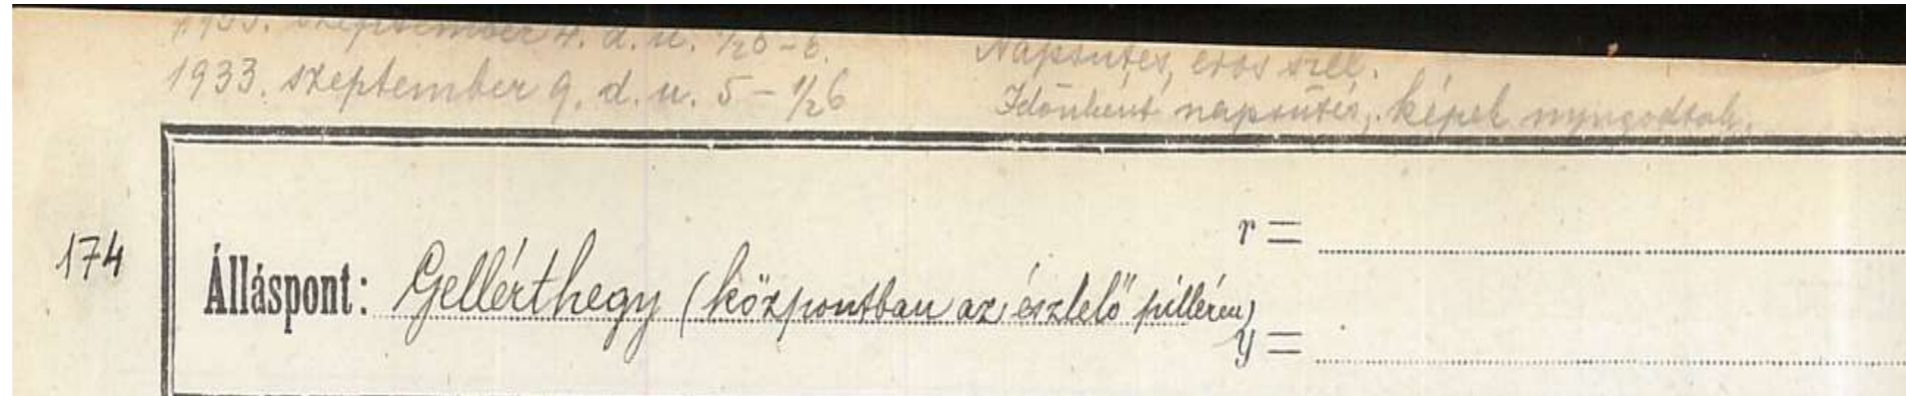 1933. szeptember 4. d. u. ½6–6. Napsütés, erős szél.
1933. szeptember 9. d. u. 5 – ½6 Időnként napsütés, képek nyugodtak.
174
r =
Álláspont: Gellérthegy (központban az észlelő pillérén)
y =